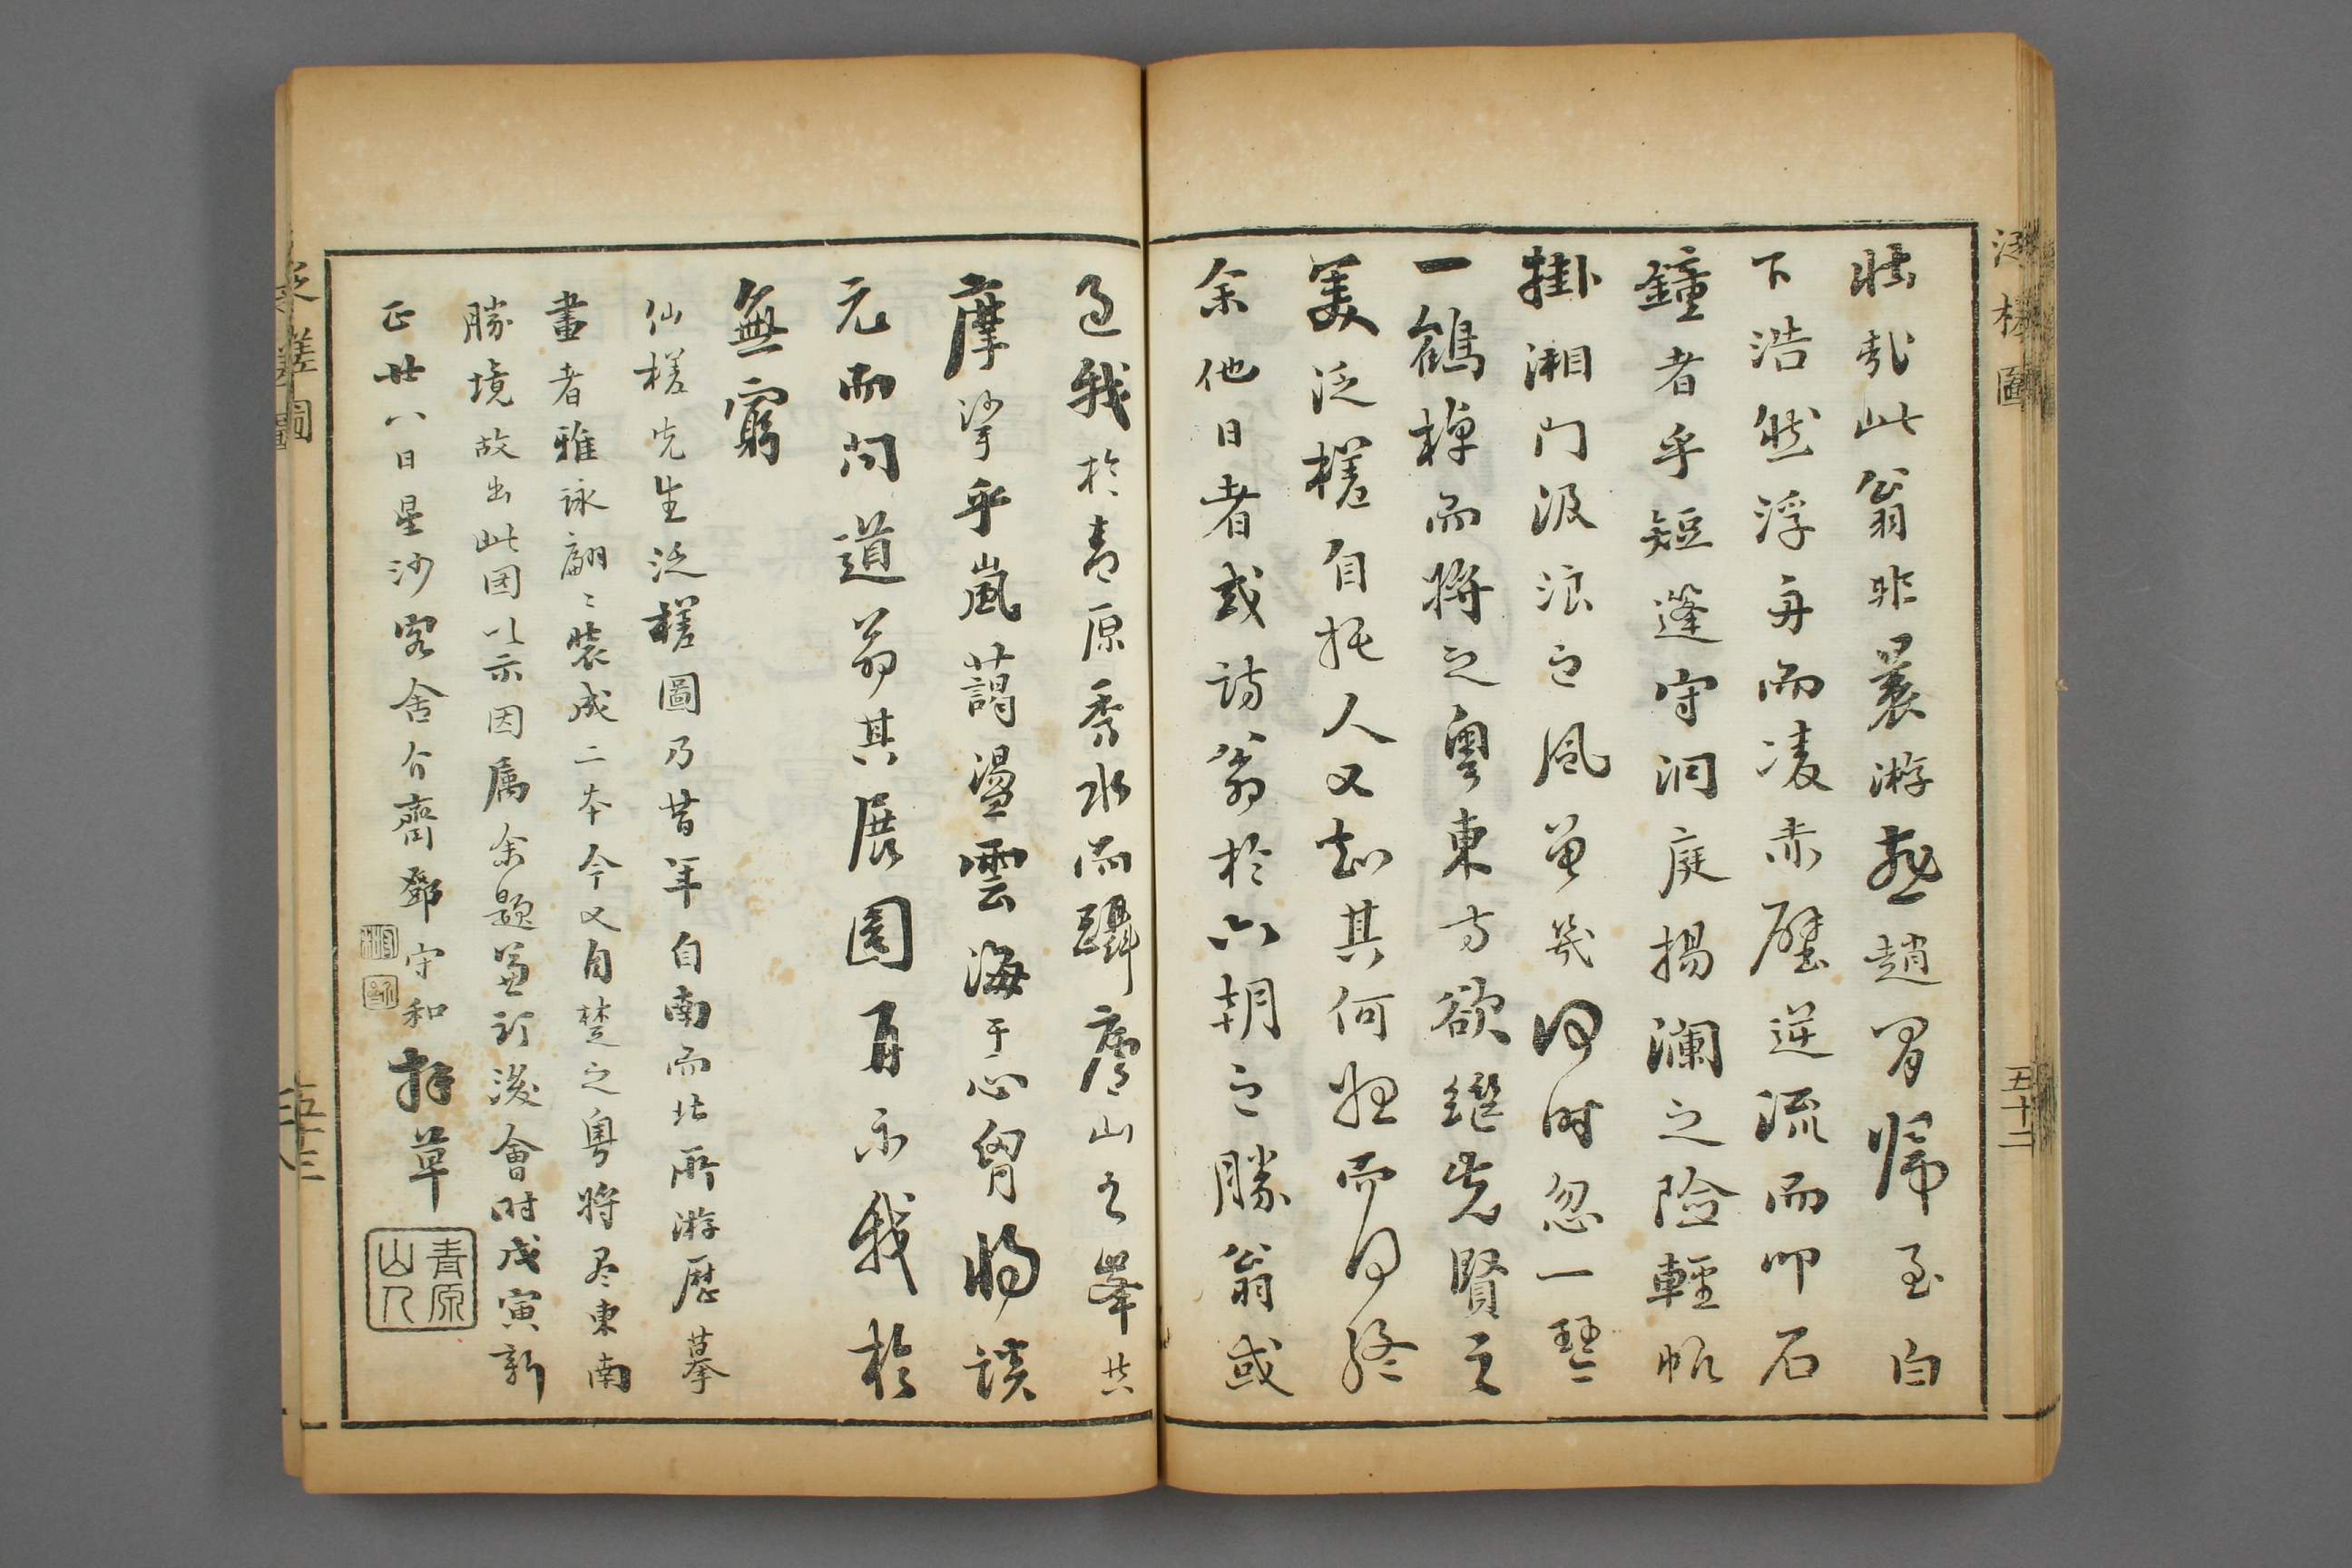 泛槎圖
五十二
壯哉此翁非曩游燕趙間歸至白
下浩然浮舟而凌赤壁逆流而叩石
鐘者乎短蓬守洞庭揚瀾之險輕帆
掛湘門汲浪之風曾幾何時忽一琴
一鶴棹而將之粵東方欲繼先賢之
美泛槎自托人又知其何始而何終
余他日者或訪翁於六朝之勝翁或
過我於青原秀水而躡廬山之峯共
摩挲乎嵐藹盪雲海于心胸將談
元而問道翁其展圖再示我於
無窮
仙槎先生泛槎圖乃昔年自南而北所游歷摹
畫者雅詠翩〻裝成二本今又自楚之粵將尽東南
勝境故出此图以示因属余題並訂後會时戊寅新
正廿八日星沙客舍介齋鄧守和拜草
青原山人
泛槎圖
五十三